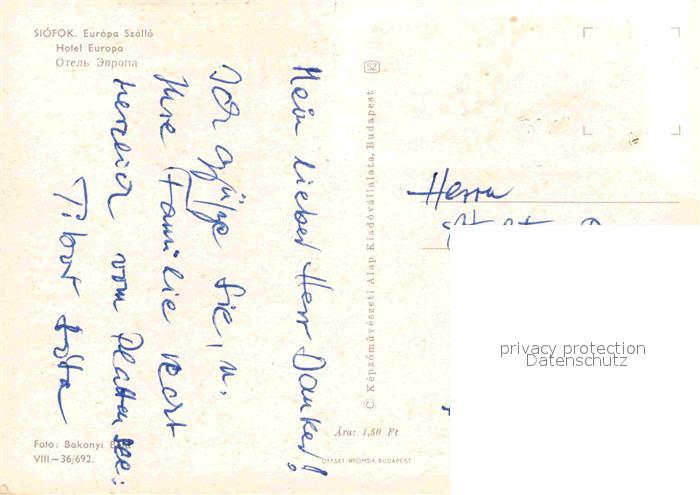 SIÓFOK. Európa Szálló
Hotel Europa
Отель Эвропа
Mein lieber Herr Danker!
Ich grüße Sie, u.
Ihre Familie recht
herzlich vom Plattensee:
Tibor
Foto: Bakonyi
VIII—36/692.
SZ
© Képzőművészeti Alap Kiadóvállalata, Budapest
Ára: 1,50 Ft
OFFSET-NYOMDA, BUDAPEST
Herrn
privacy protection
Datenschutz